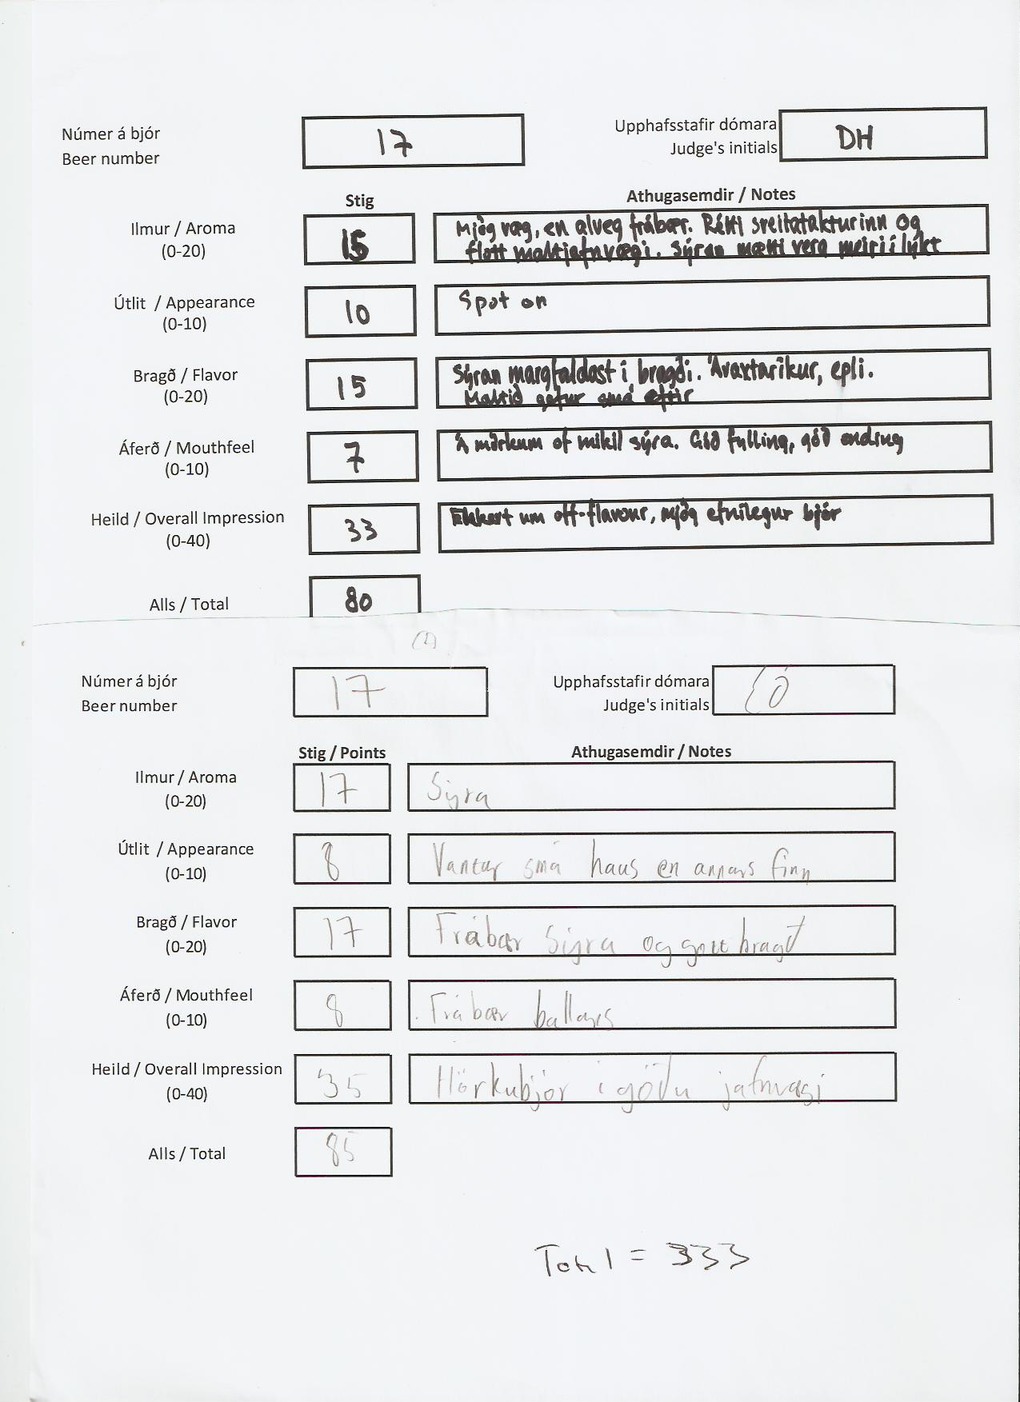 Númer á bjór
Beer number
17
Upphafsstafir dómara
Judge's initials
DH
Stig
Athugasemdir / Notes
Ilmur / Aroma
(0-20)
15
Mjög væg, en alveg frábær. Rétti sveitatakturinn og
flott maltjafnvægi. Sýran mætti vera meiri í lykt
Útlit / Appearance
(0-10)
10
Spot on
Bragð / Flavor
(0-20)
15
Sýran margfaldast í bragði. Ávaxtaríkur, epli.
Maltið gefur smá eftir
Áferð / Mouthfeel
(0-10)
7
Á mörkum of mikil sýra. Góð fylling, góð ending
Heild / Overall Impression
(0-40)
33
Ekkert um off-flavour, mjög efnilegur bjór
Alls / Total
80
(2)
Númer á bjór
Beer number
17
Upphafsstafir dómara
Judge's initials
Stig / Points
Athugasemdir / Notes
Ilmur / Aroma
(0-20)
17
Sýra
Útlit / Appearance
(0-10)
8
Vantar smá haus en annars fínn
Bragð / Flavor
(0-20)
17
Frábær sýra og gott bragð
Áferð / Mouthfeel
(0-10)
8
Frábær ballans
Heild / Overall Impression
(0-40)
35
Hörkubjór í góðu jafnvægi
Alls / Total
85
Total = 333